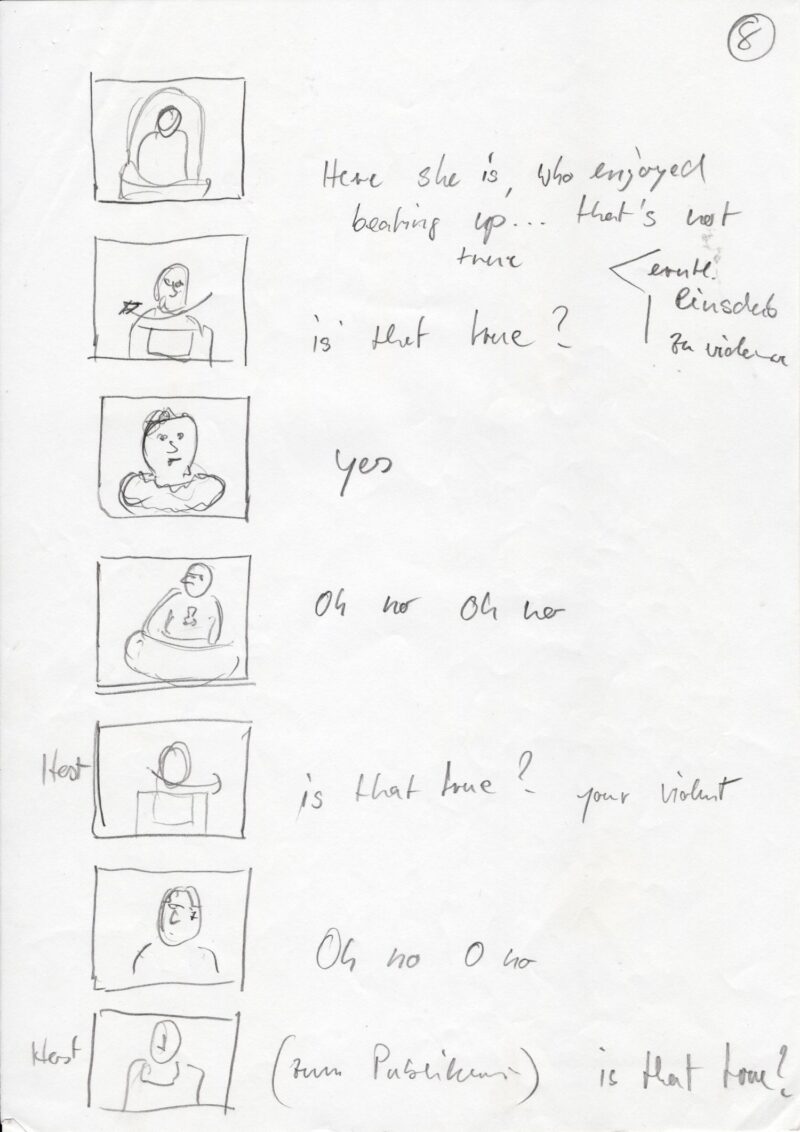 8
Here she is, who enjoyed
beating up... that's not
true
is that true?
zu violence
yes
Oh no Oh no
is that true? your violent
Oh no O no
(zum Publikum) is that true?